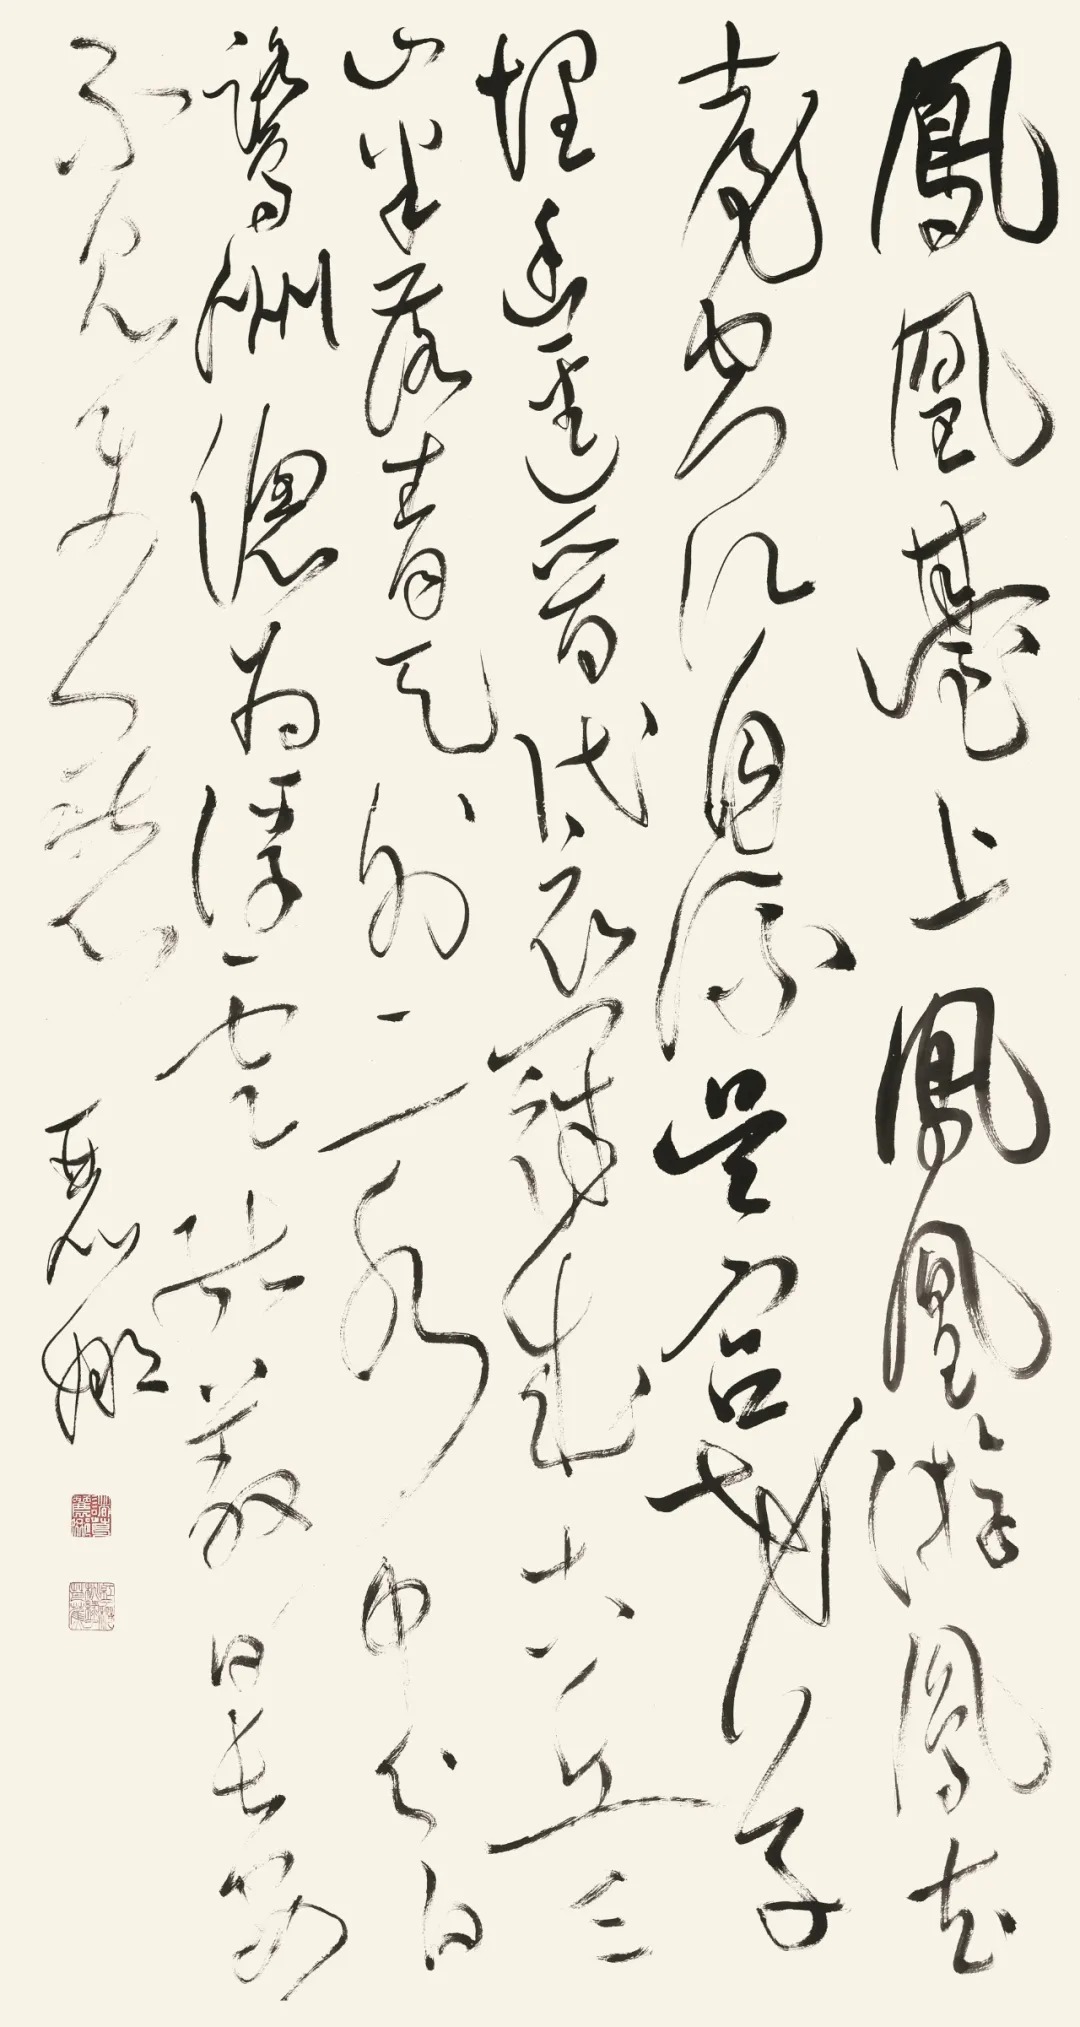 鳳凰臺上鳳凰游鳳去
臺空江自流吳宮花草
埋幽徑晉代衣冠成古丘三
山半落青天外二水中分白
鷺洲總為浮雲能蔽日長安
不見使人愁